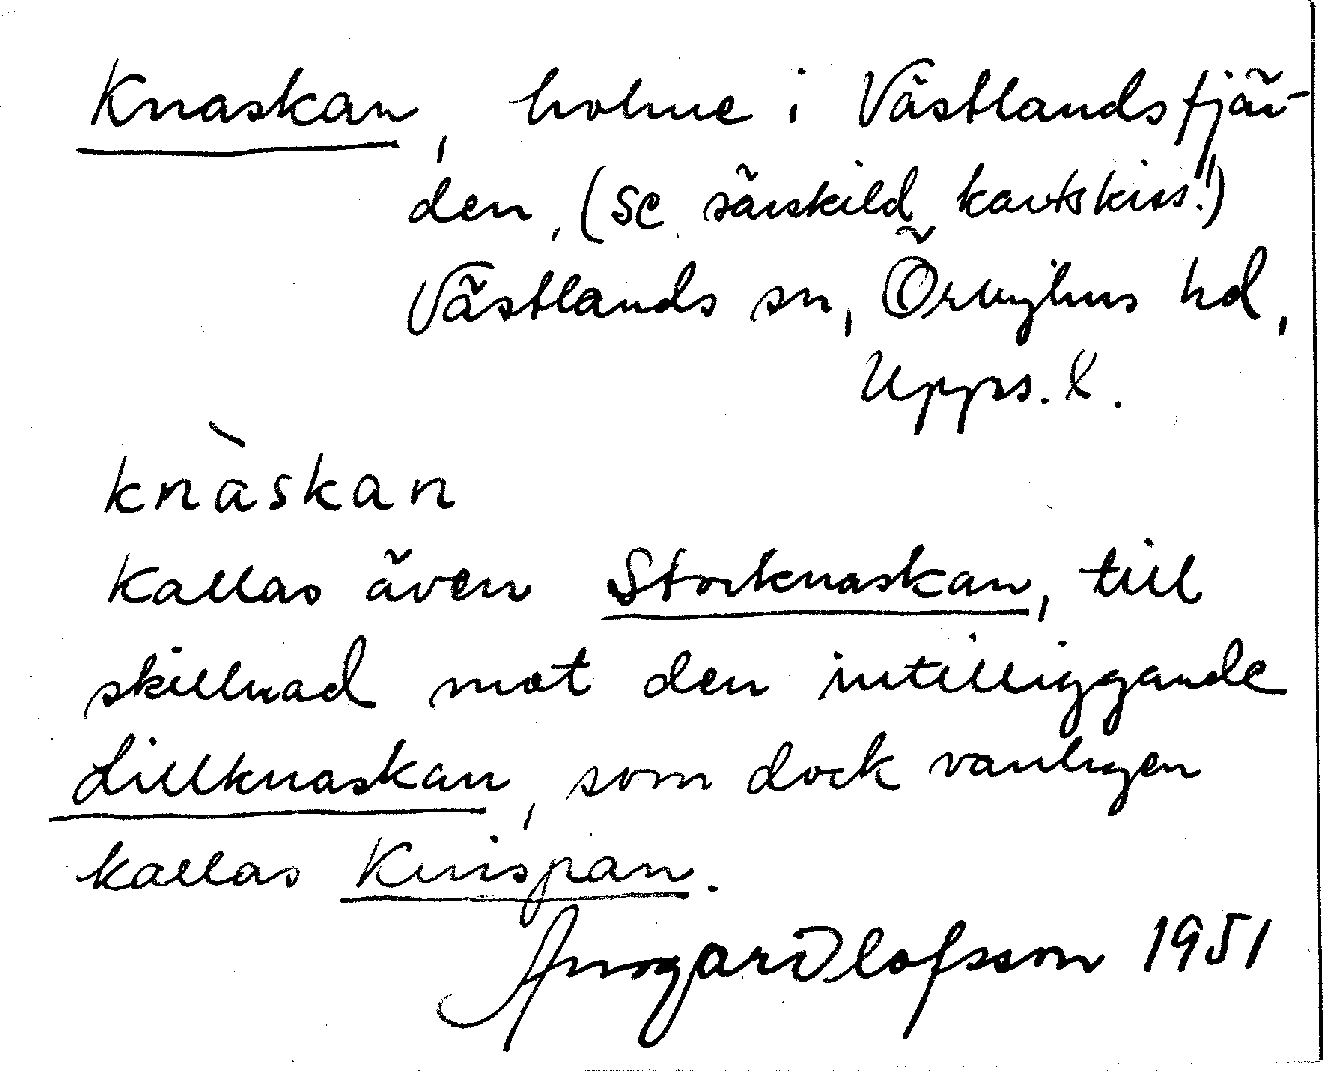 Knaskan, holme i Västlandsfjär-
den, (se särskild kartskiss!)
Västlands sn, Örbyhus hd,
Upps. l.
knàskan
kallas även Storknaskan, till
skillnad mot den intilliggande
Lillknaskan, som dock vanligen
kallas Knispan.
Ansgar Olofsson 1951